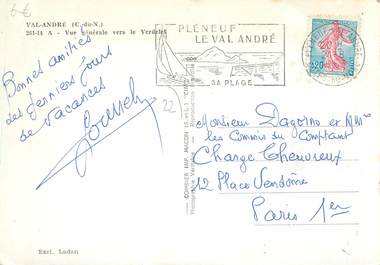 6€
VAL-ANDRÉ (C.-du-N.)
261-14 A - Vue générale vers le Verdelet
PLÉNEUF
LE VAL ANDRÉ
SA PLAGE
0,20
22
Bonnes amitiés
des derniers jours
de vacances
Monsieur Dagorno et MM
les Commis du Comptant
Charge Cheuvreux
12 Place Vendôme
Paris 1er
COMBIER IMP. MACON
Excl. Ludan